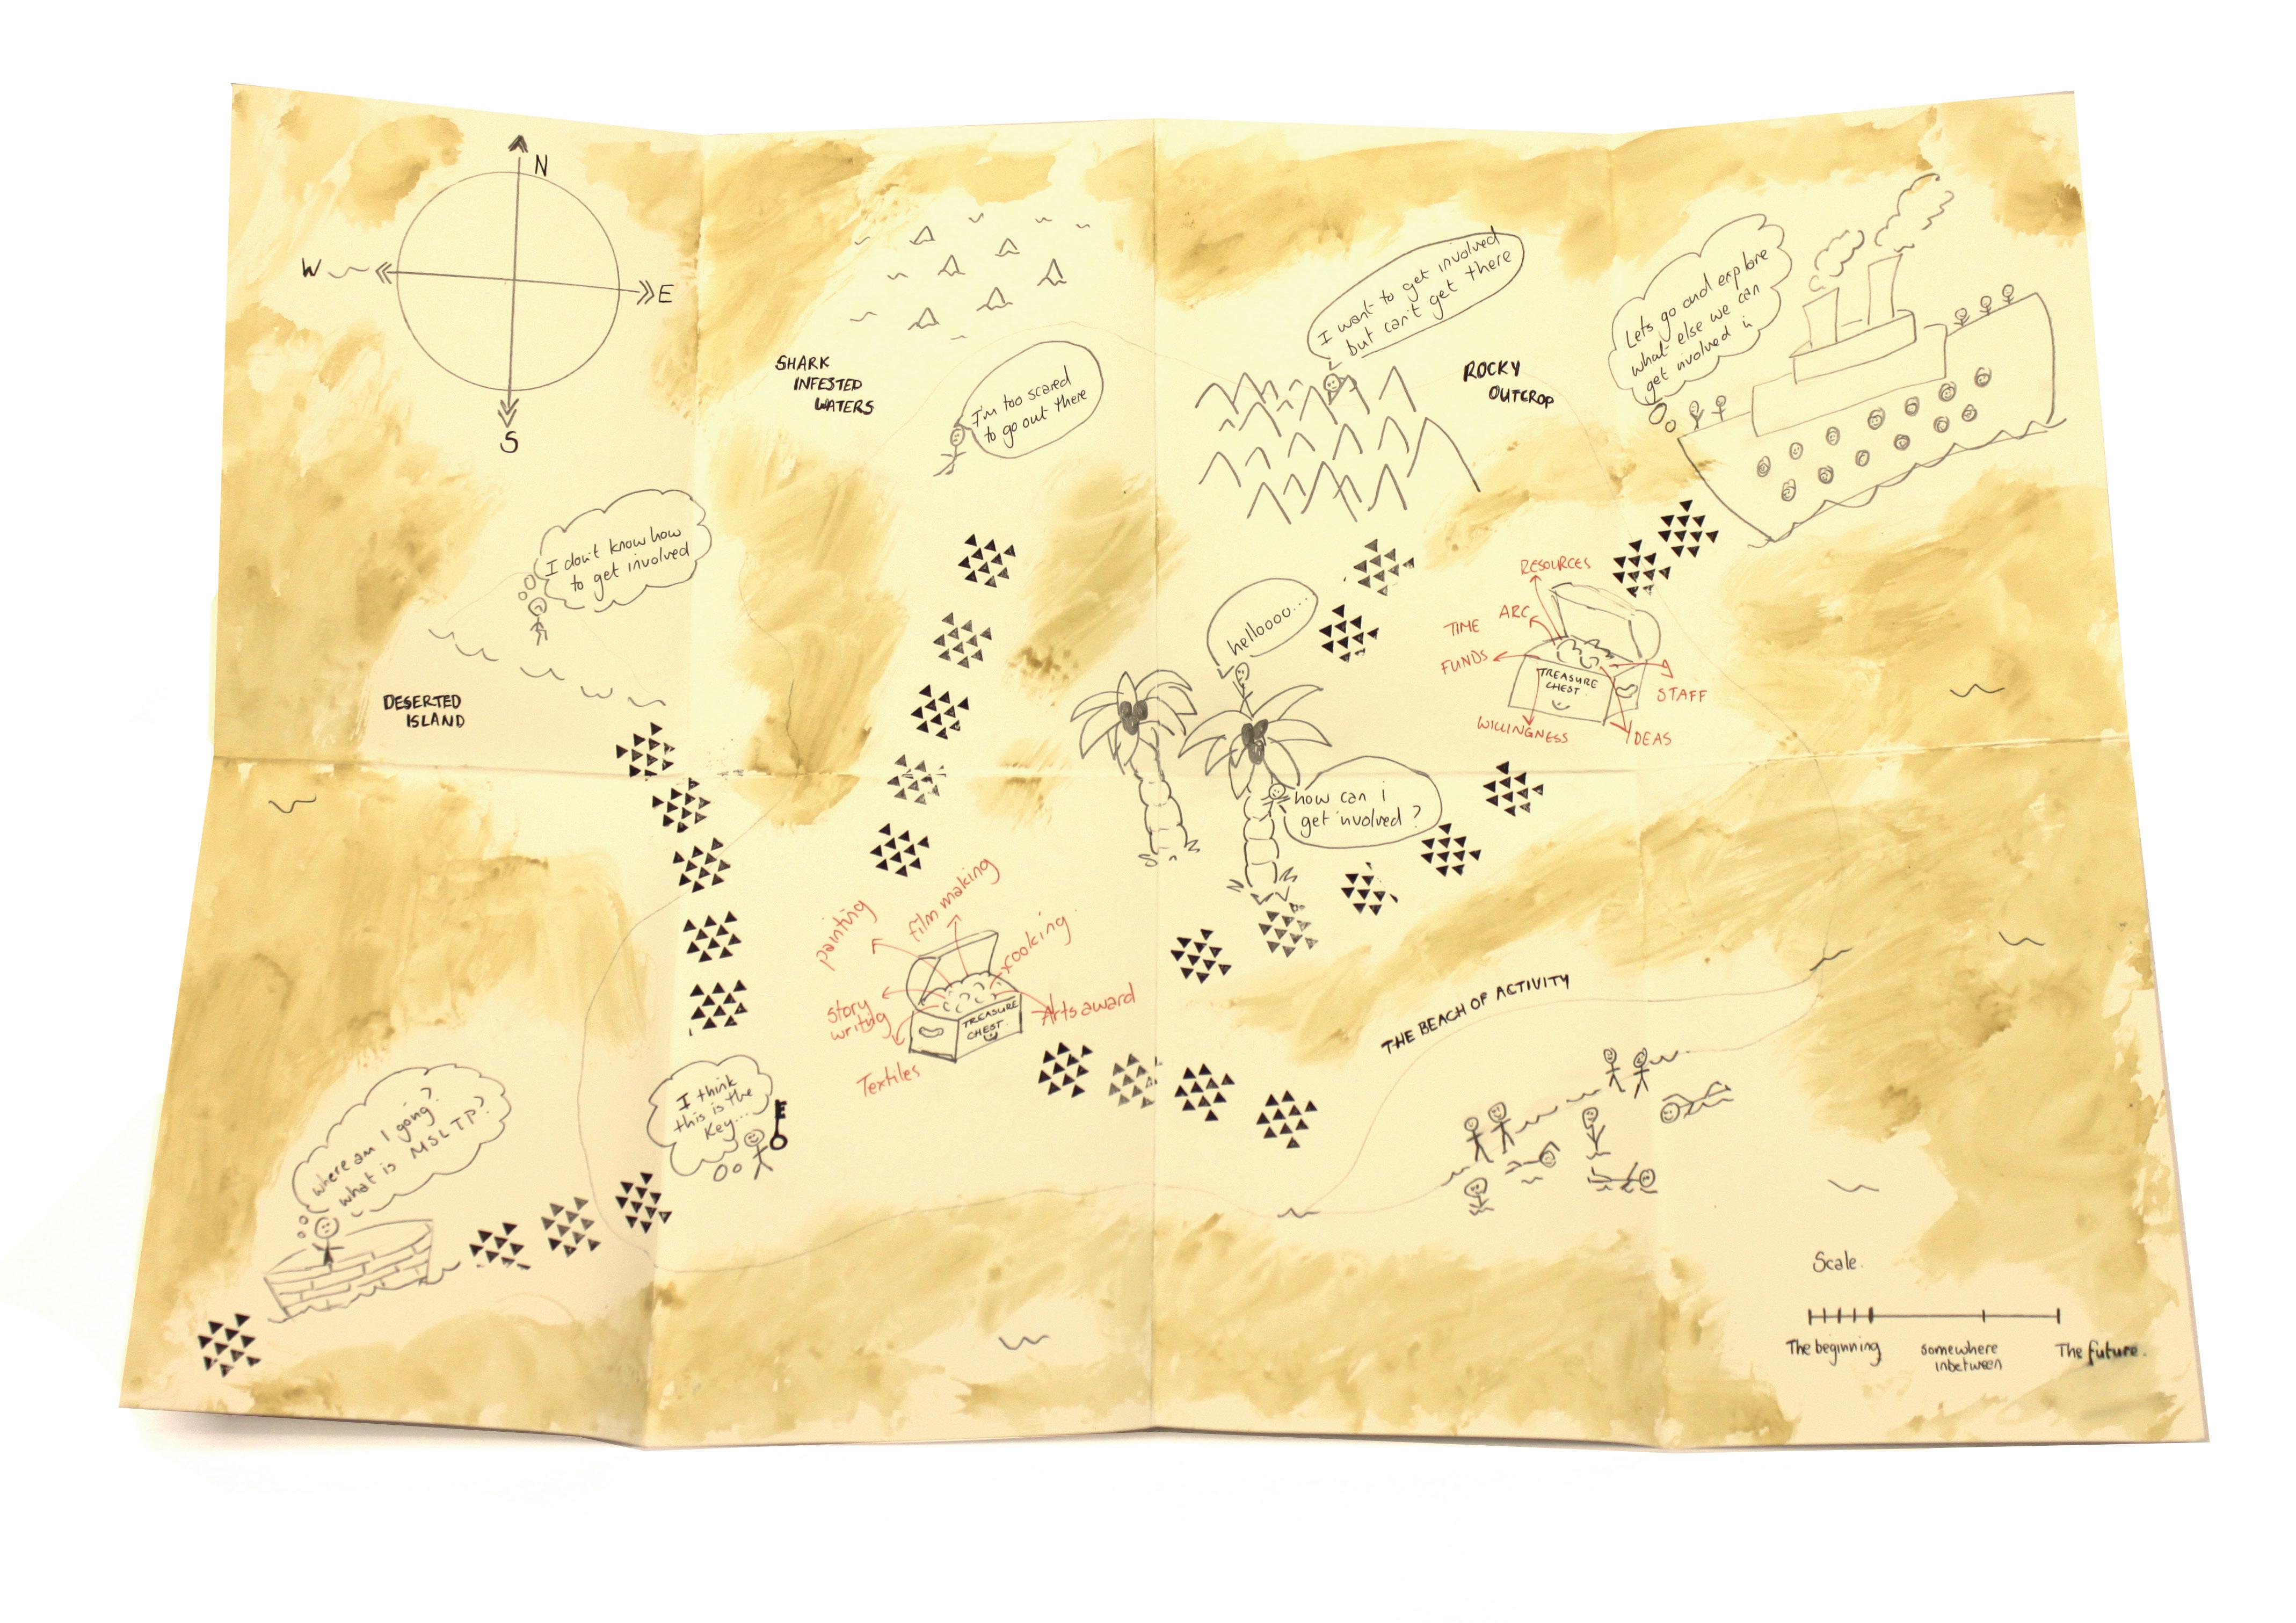 N
W
E
S
SHARK
INFESTED
WATERS
I'm too scared
to go out there
I want to get involved
but can't get there
ROCKY
OUTCROP
Lets go and explore
what else we can
get involved in
I don't know how
to get involved
DESERTED
ISLAND
helloooo....
how can I
get involved?
RESOURCES
ARC
TIME
FUNDS
TREASURE
CHEST
STAFF
WILLINGNESS
IDEAS
painting
film making
cooking
Story
writing
TREASURE
CHEST
Arts award
Textiles
THE BEACH OF ACTIVITY
I think
this is the
key....
where am I going?
what is MSLTP?
Scale.
The beginning
somewhere
inbetween
The future.